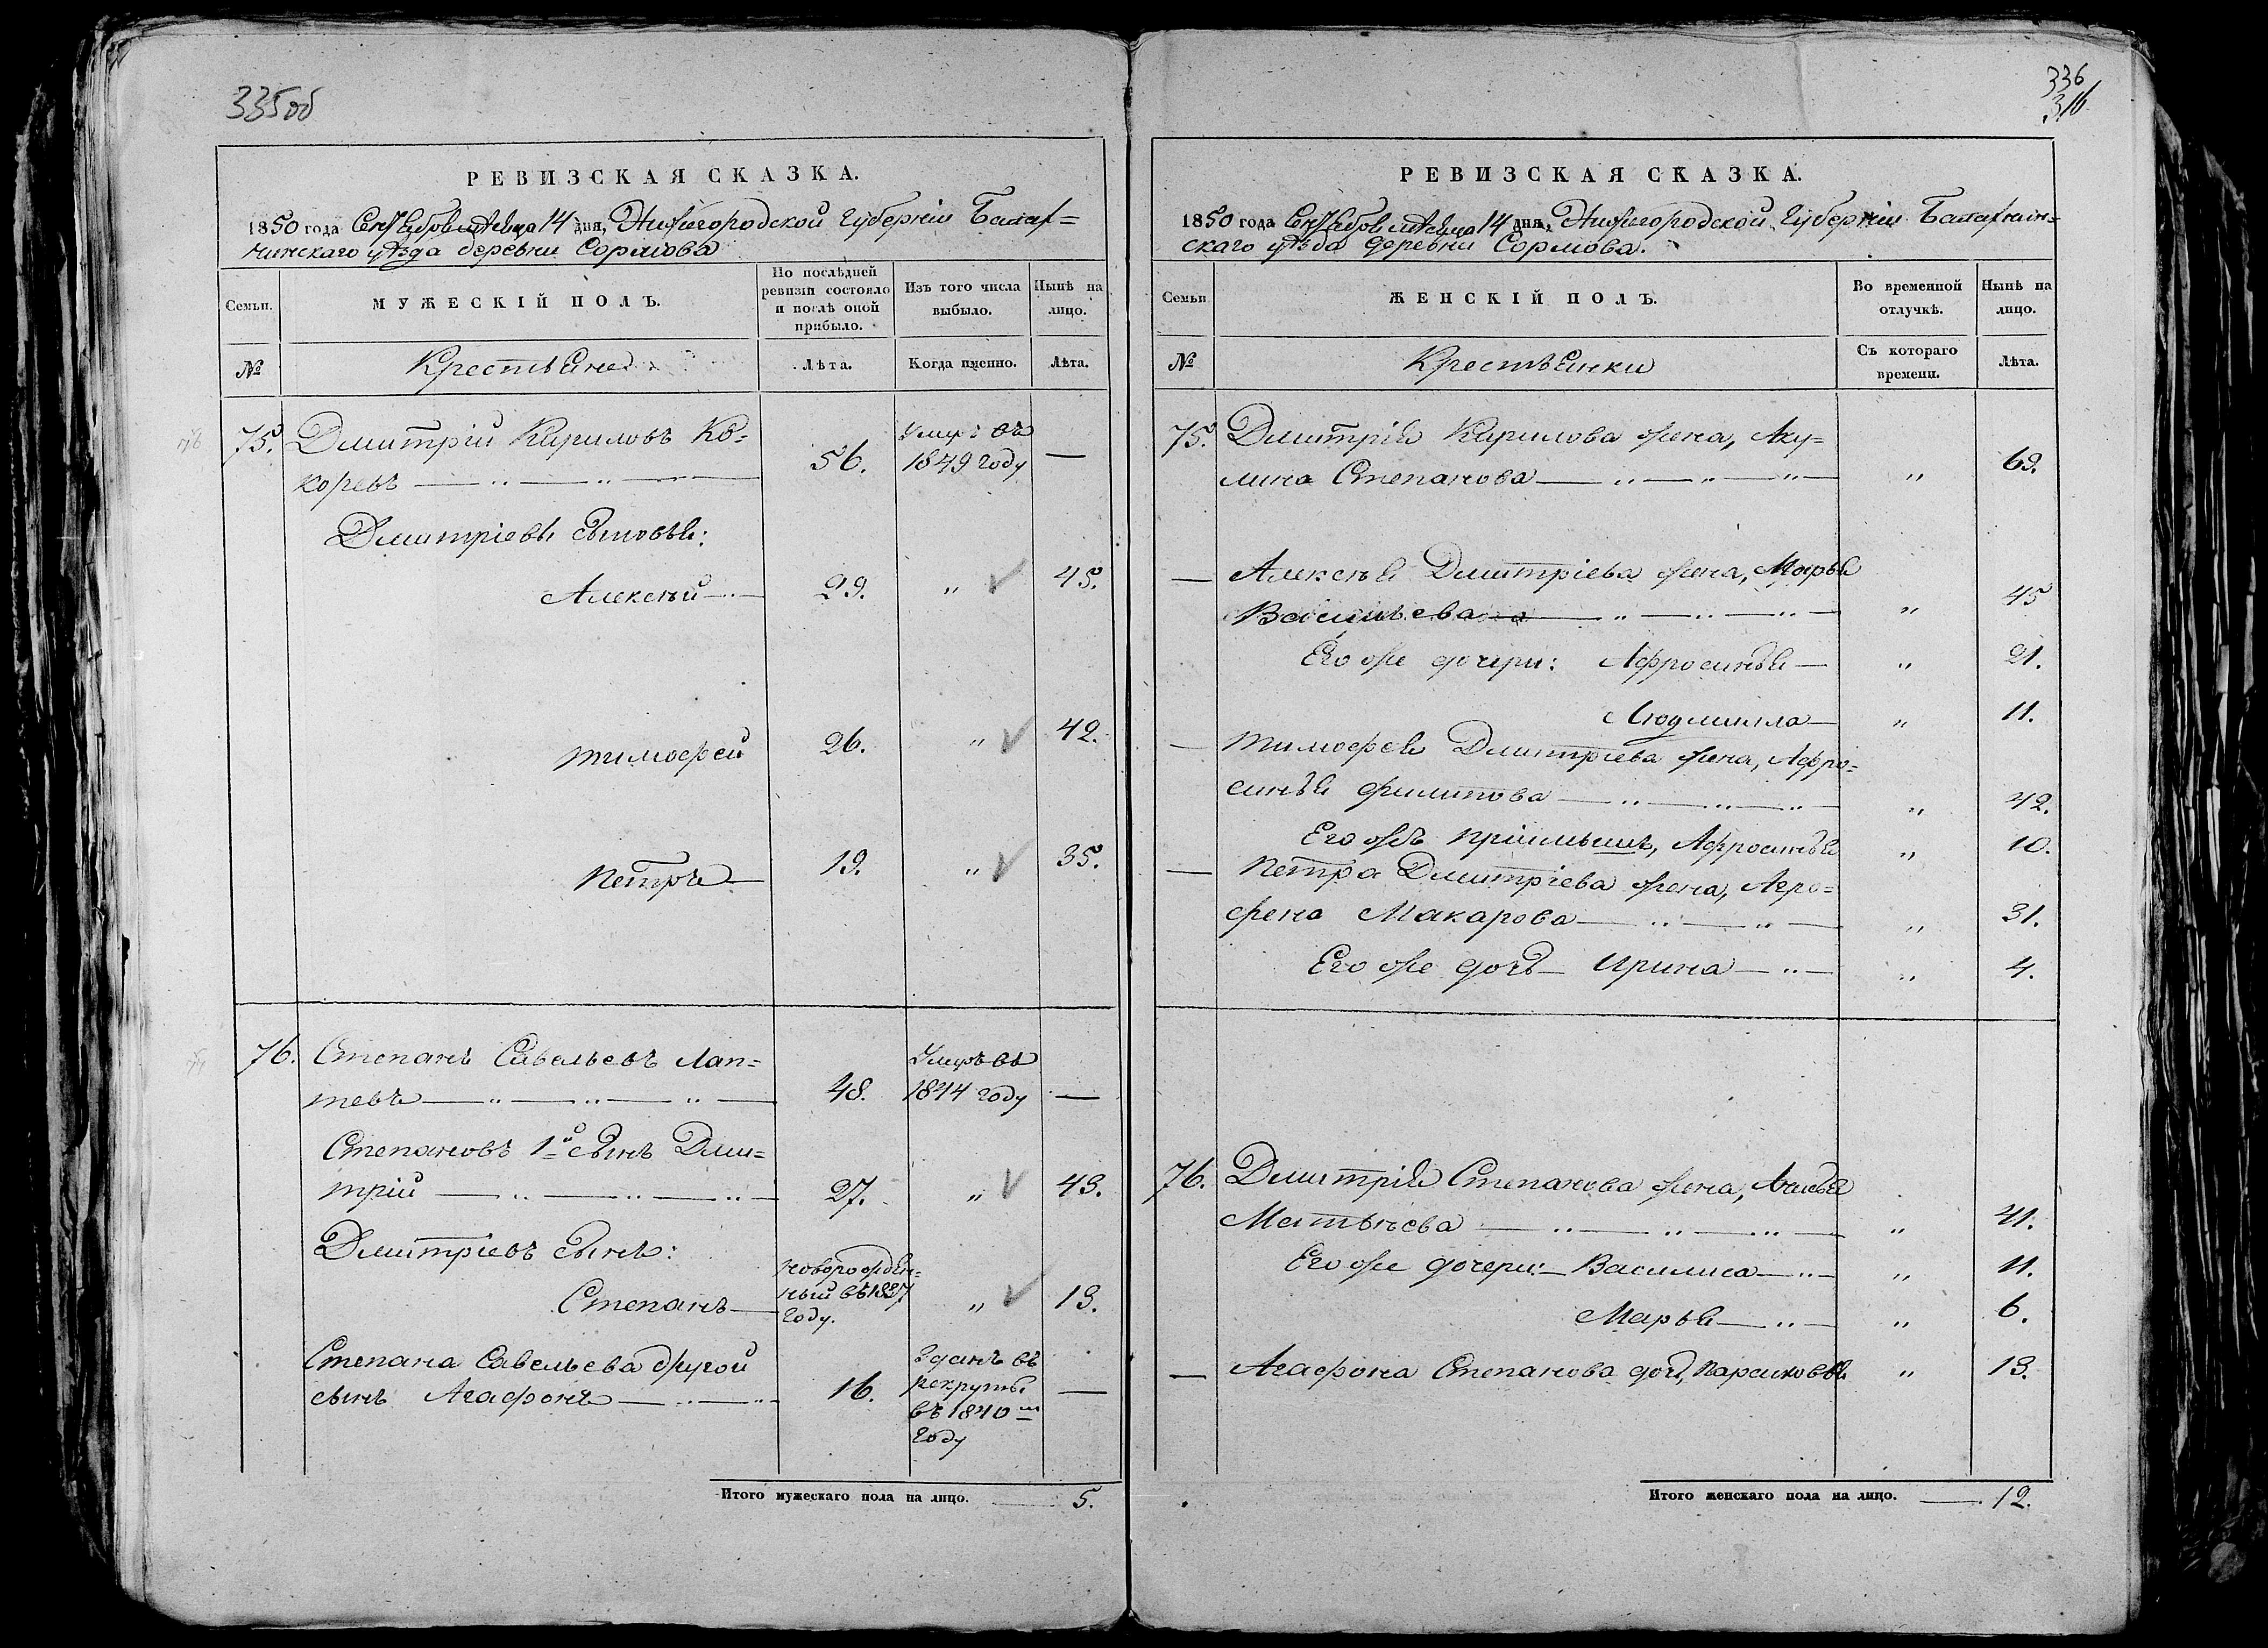 335об
РЕВИЗСКАЯ СКАЗКА.
1850 года Сентября месяца 14 дня, Нижегородской Губернiи Балах=
нинскаго уѣзда деревни Сормова
Семьи.
МУЖЕСКІЙ ПОЛЪ.
По послѣдней ревизіи состояло и послѣ оной прибыло.
Изъ того числа выбыло.
Нынѣ на лицо.
№
Крестьяне
Лѣта.
Когда именно.
Лѣта.
75. Дмитрій Кириловъ Ко=
коревъ 56. Умеръ въ 1849 году —
Дмитріевы сыновья:
Алексѣй 29. „ 45.
Тимофей 26. „ 42.
Петръ 19. „ 35.
76. Степанъ Савельевъ Лап=
тевъ 48. Умеръ въ 1844 году —
Степановъ 1й сынъ Дми=
трій 27. „ 43.
Дмитріевъ сынъ:
Степанъ новорожден=
ный въ 1837
году. „ 13.
Степана Савельева другой
сынъ Агафонъ 16. Зданъ въ
рекруты —
въ 1840м
году
Итого мужескаго пола на лицо. 5.
336
316
РЕВИЗСКАЯ СКАЗКА.
1850 года Сентября месяца 14 дня, Нижегородской Губерніи Балахнин=
скаго уѣзда деревни Сормова.
Семьи
ЖЕНСКІЙ ПОЛЪ.
Во временной отлучкѣ.
Нынѣ на лицо.
№
Крестьянки
Съ котораго времени.
Лѣта.
75. Дмитрія Кирилова жена, Аку=
лина Степанова „ 69.
— Алексѣя Дмитріева жена, Марья
Васильева „ 45
Его же дочери: Афросинья „ 21.
Людмилла „ 11.
— Тимофея Дмитріева жена, Афро=
синья Филипова „ 42.
Его жъ пріимышъ, Афросинья „ 10.
— Петра Дмитріева жена, Агро=
фена Макарова „ 31.
Его же дочь Ирина „ 4.
76. Дмитрія Степанова жена,
Матвѣева „ 41.
Его же дочери: Василиса „ 11.
Марья „ 6.
— Агафона Степанова дочь, Парасковья „ 13.
Итого женскаго пола на лицо. 12.